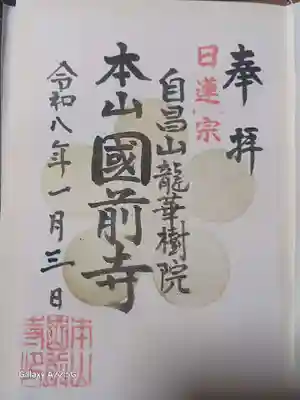 奉拝
日蓮宗
自昌山龍華樹院
本山國前寺
令和八年一月三日
本山
國前
寺印
Galaxy A7 5G